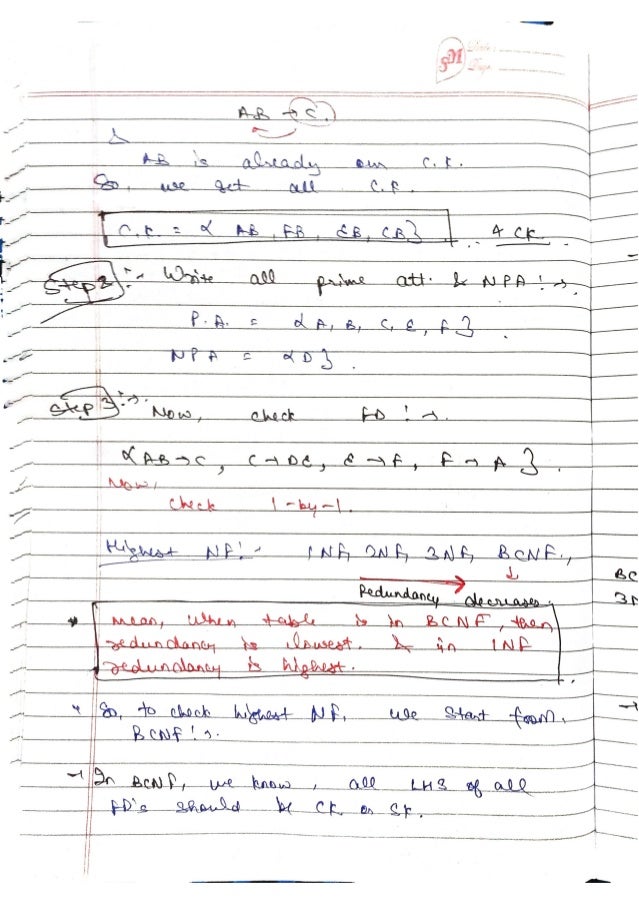 SM Date:
Page
AB → C.
AB is already our C.K.
So, we get all C.K.
C.K. = { AB, FB, EB, CB } .. 4 CK
Step 2 :- Write all prime att. & NPA :→.
P.A. = { A, B, C, E, F }
NPA = { D }.
Step 3 :→. Now, check FD :→.
{ AB → C, C → DE, E → F, F → A }.
Now,
check 1-by-1.
Highest NF :- 1NF, 2NF, 3NF, BCNF.,
Redundancy decreases.
* mean, when table is in BCNF, then
redundancy is lowest. & in 1NF
redundancy is highest.
* So, to check highest NF, we start from
BCNF :→.
→ In BCNF, we know, all LHS of all
FD's should be CK or SK.
BC
3N